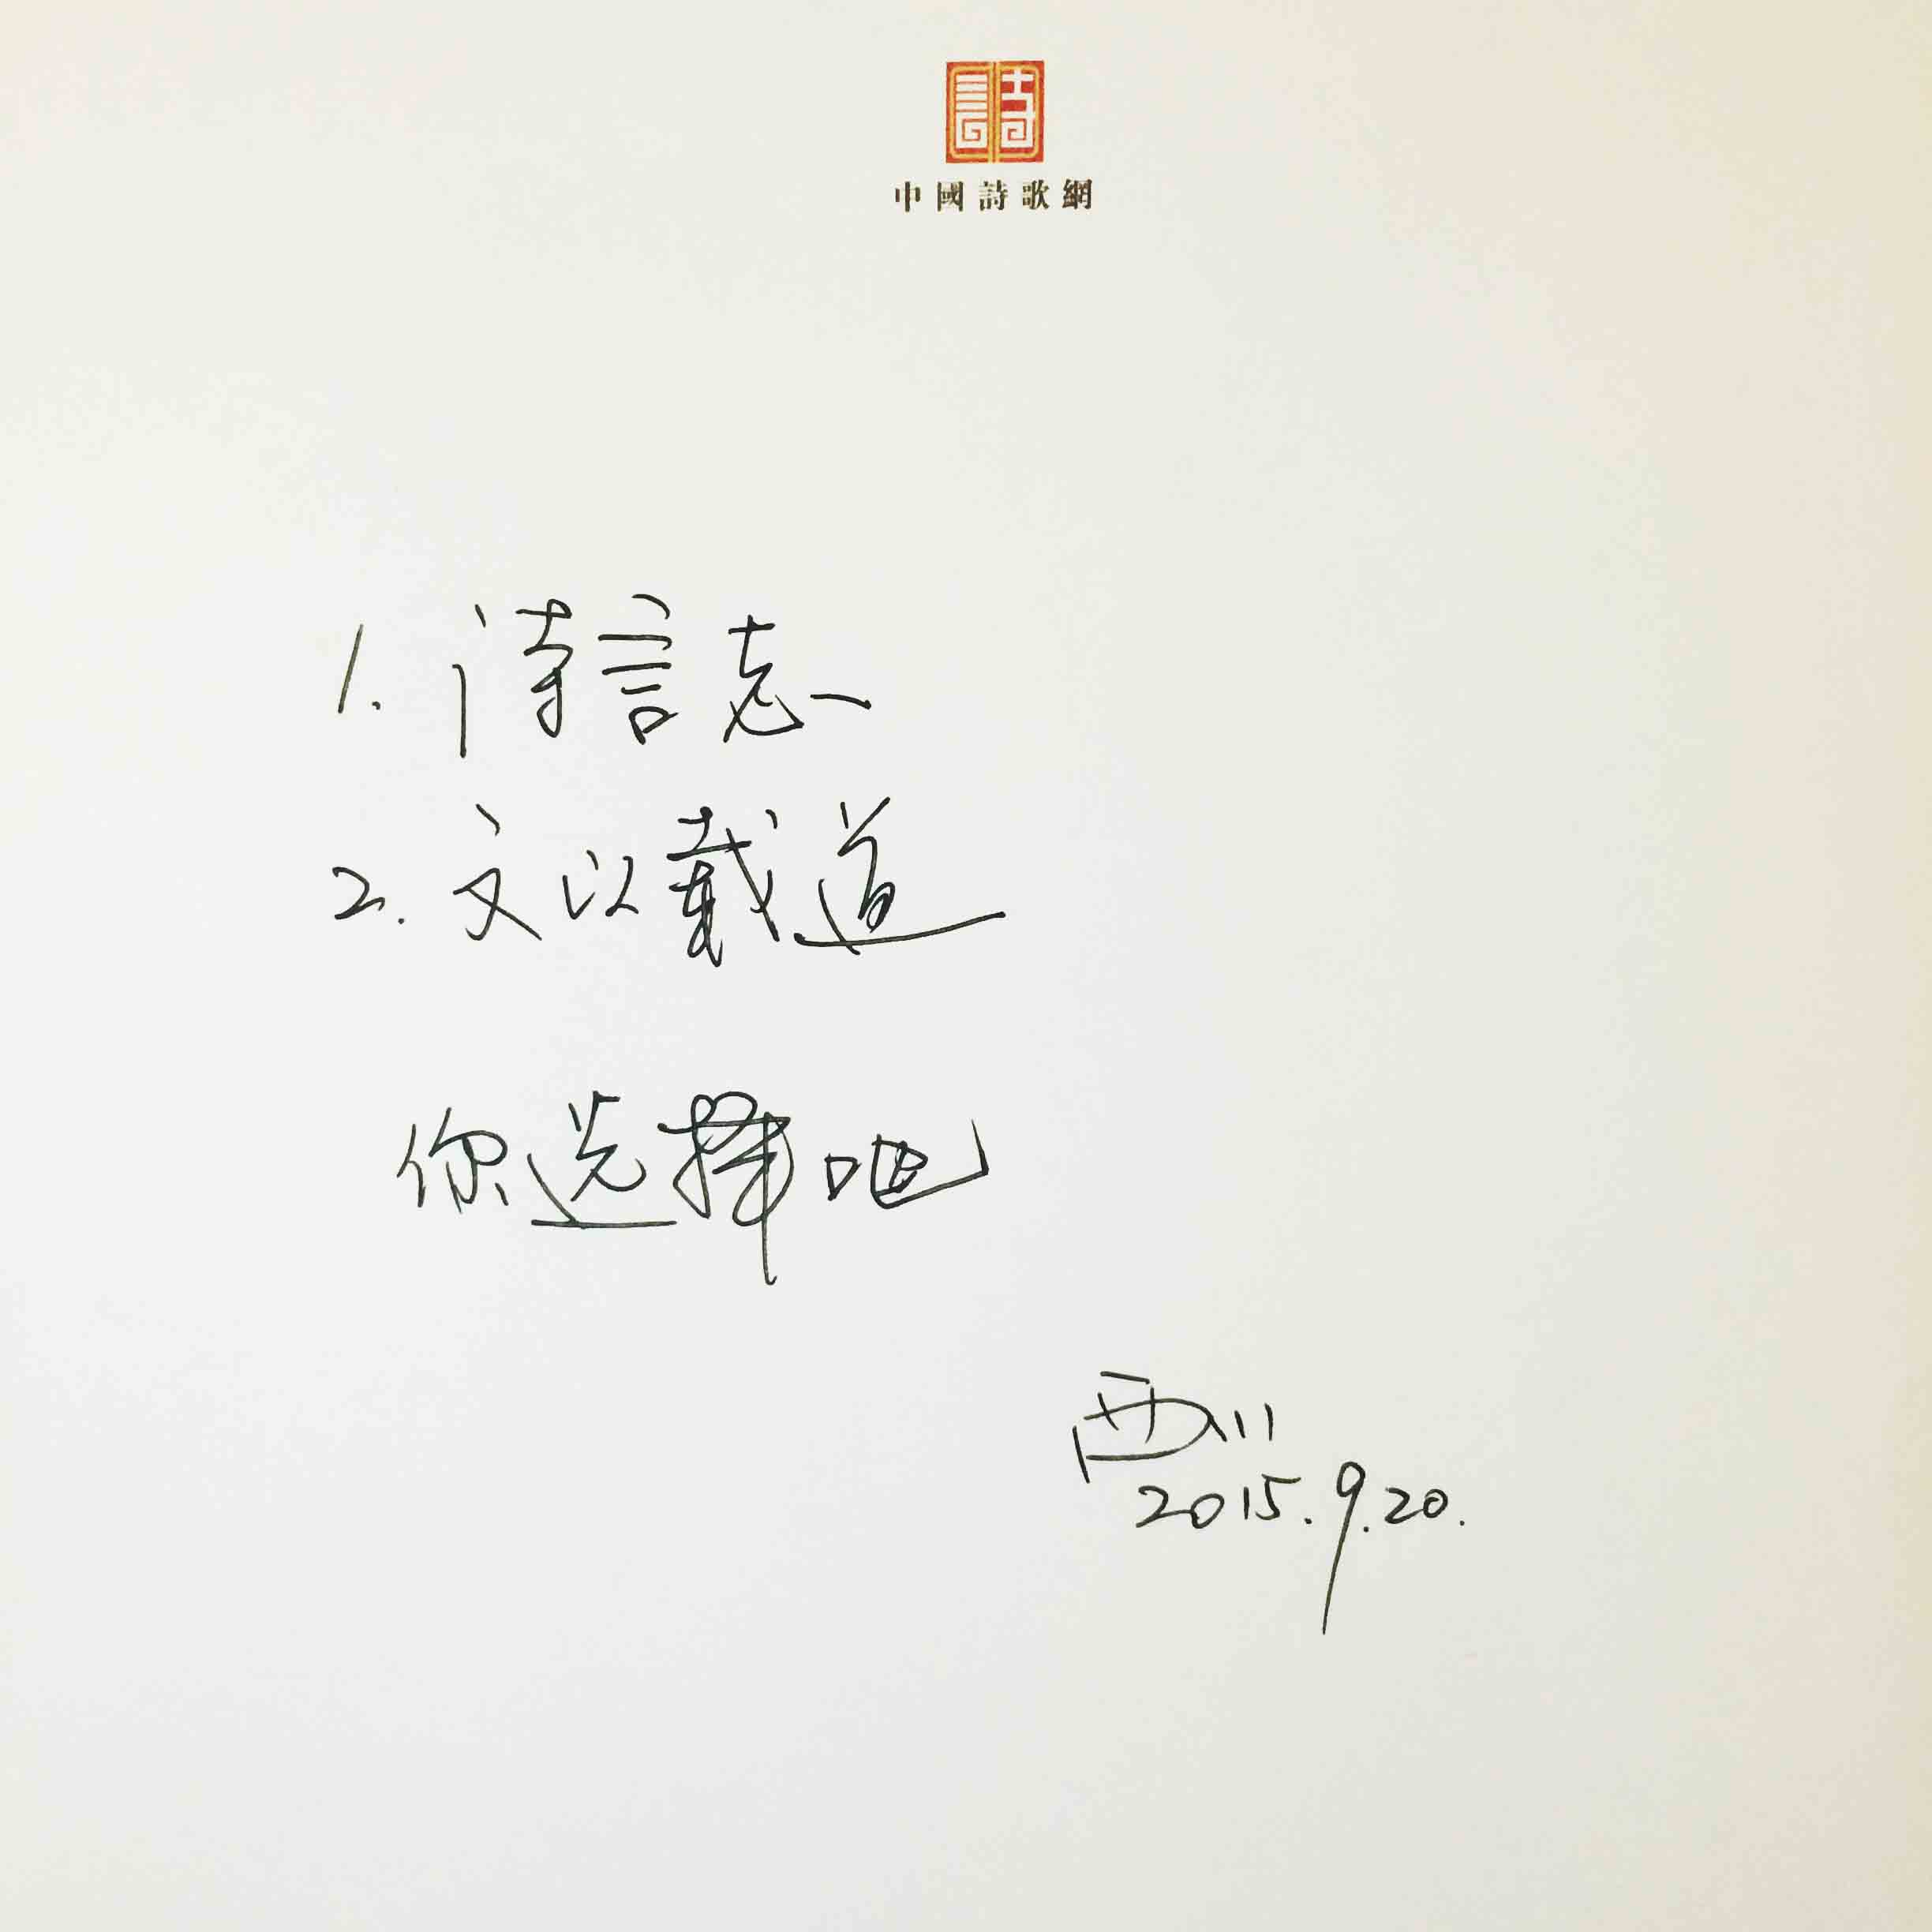 詩
中國詩歌網
1. 诗言志
2. 文以载道
你选择吧
西川
2015.9.20.